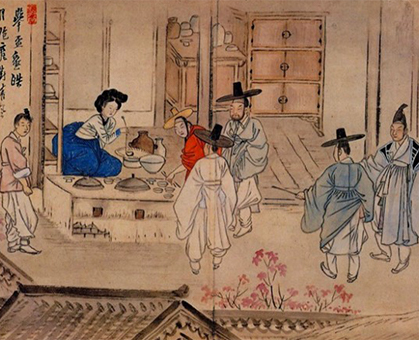 擧盃邀皓
月抱甕對淸風